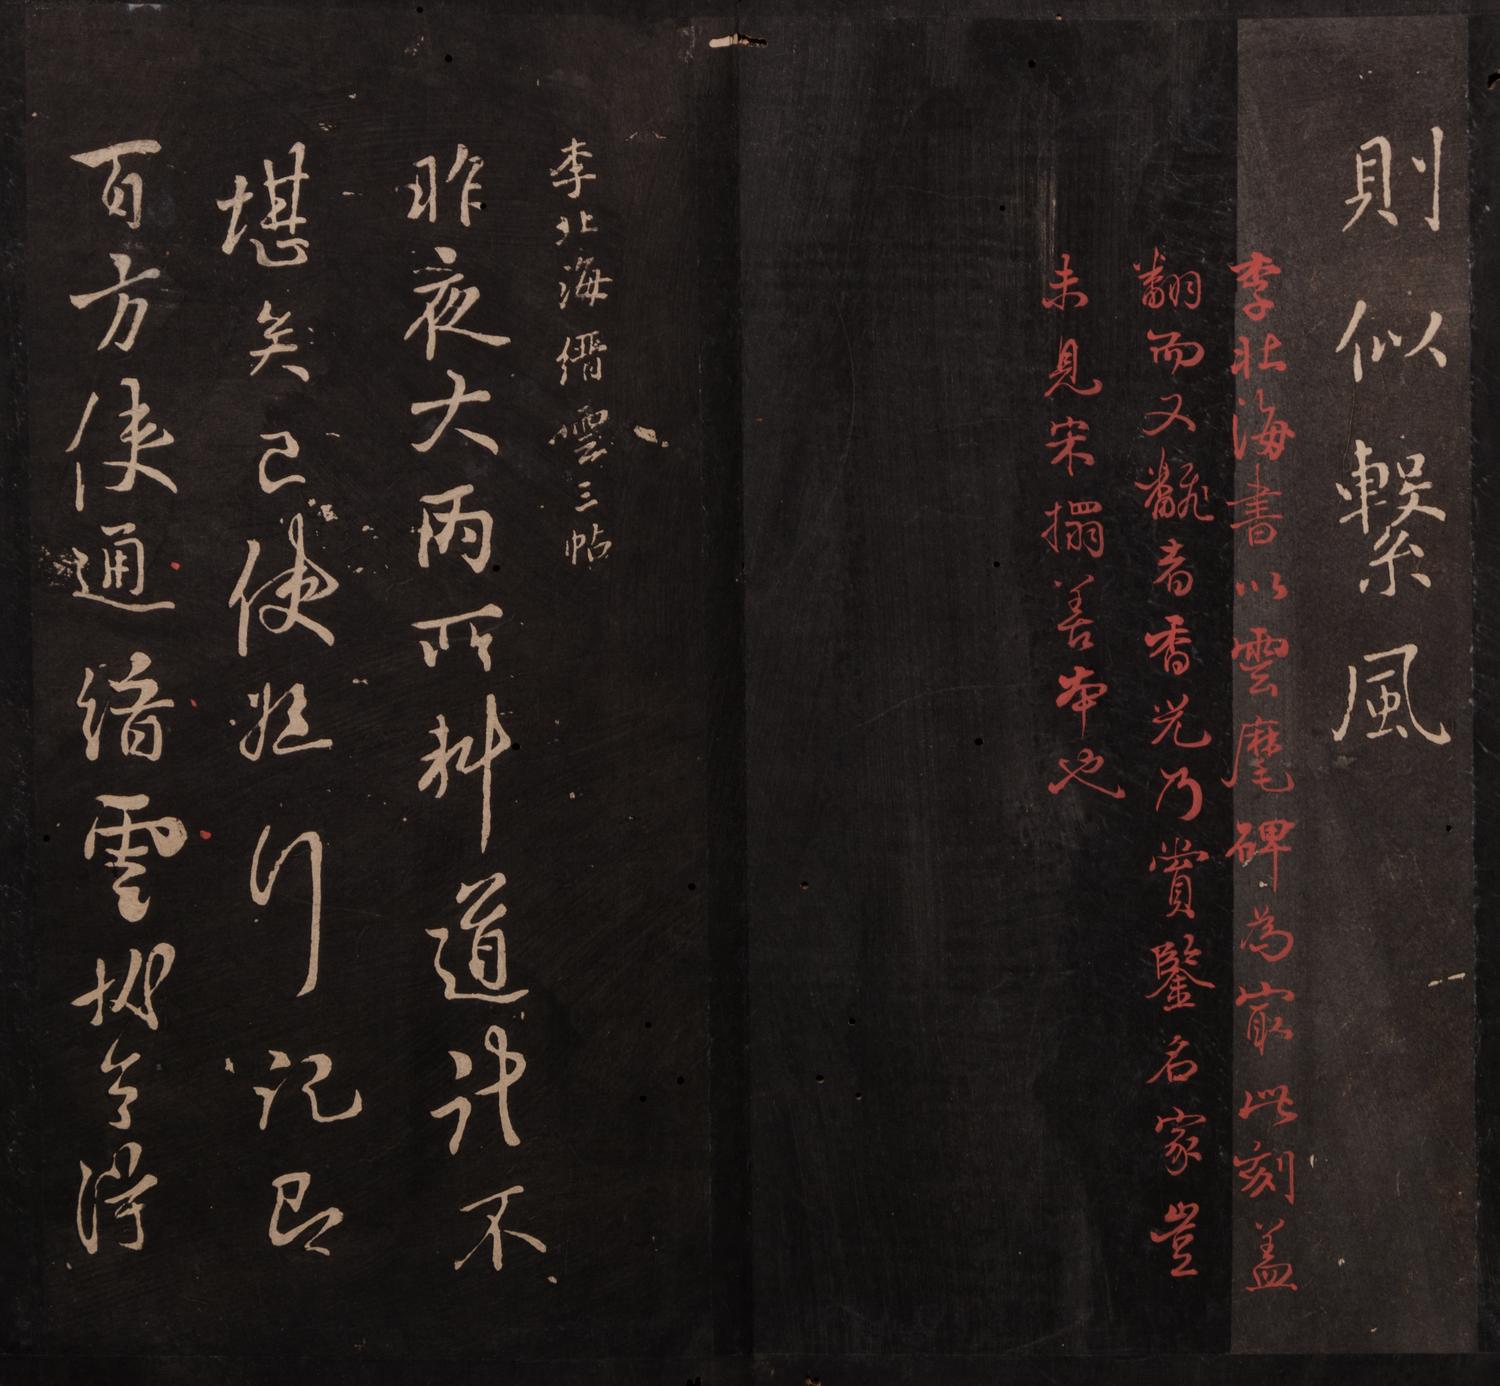 則似繫風
李北海書以雲麾碑為冣此刻盖
翻而又飜者香光乃賞鑒名家豈
未見宋搨善本也
李北海縉雲三帖
昨夜大雨所料道計不
堪矣已使怱行記即
百方使通縉雲捗令得